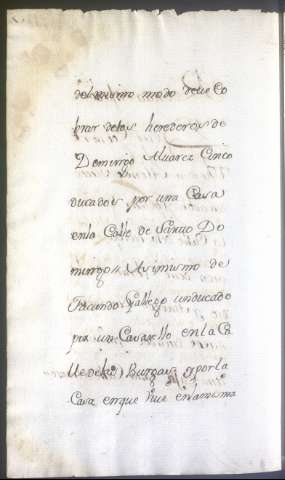 del mismo modo deue Co
brar delos herederos de
Domingo Aluarez Cinco
ducados por una Casa
enla Calle de Santo Do
mingo // Asimismo de
Facundo Gallego unducado
por un Casarello en la Ca
lle de Burgos y por la
Casa enque Viue enlamisma